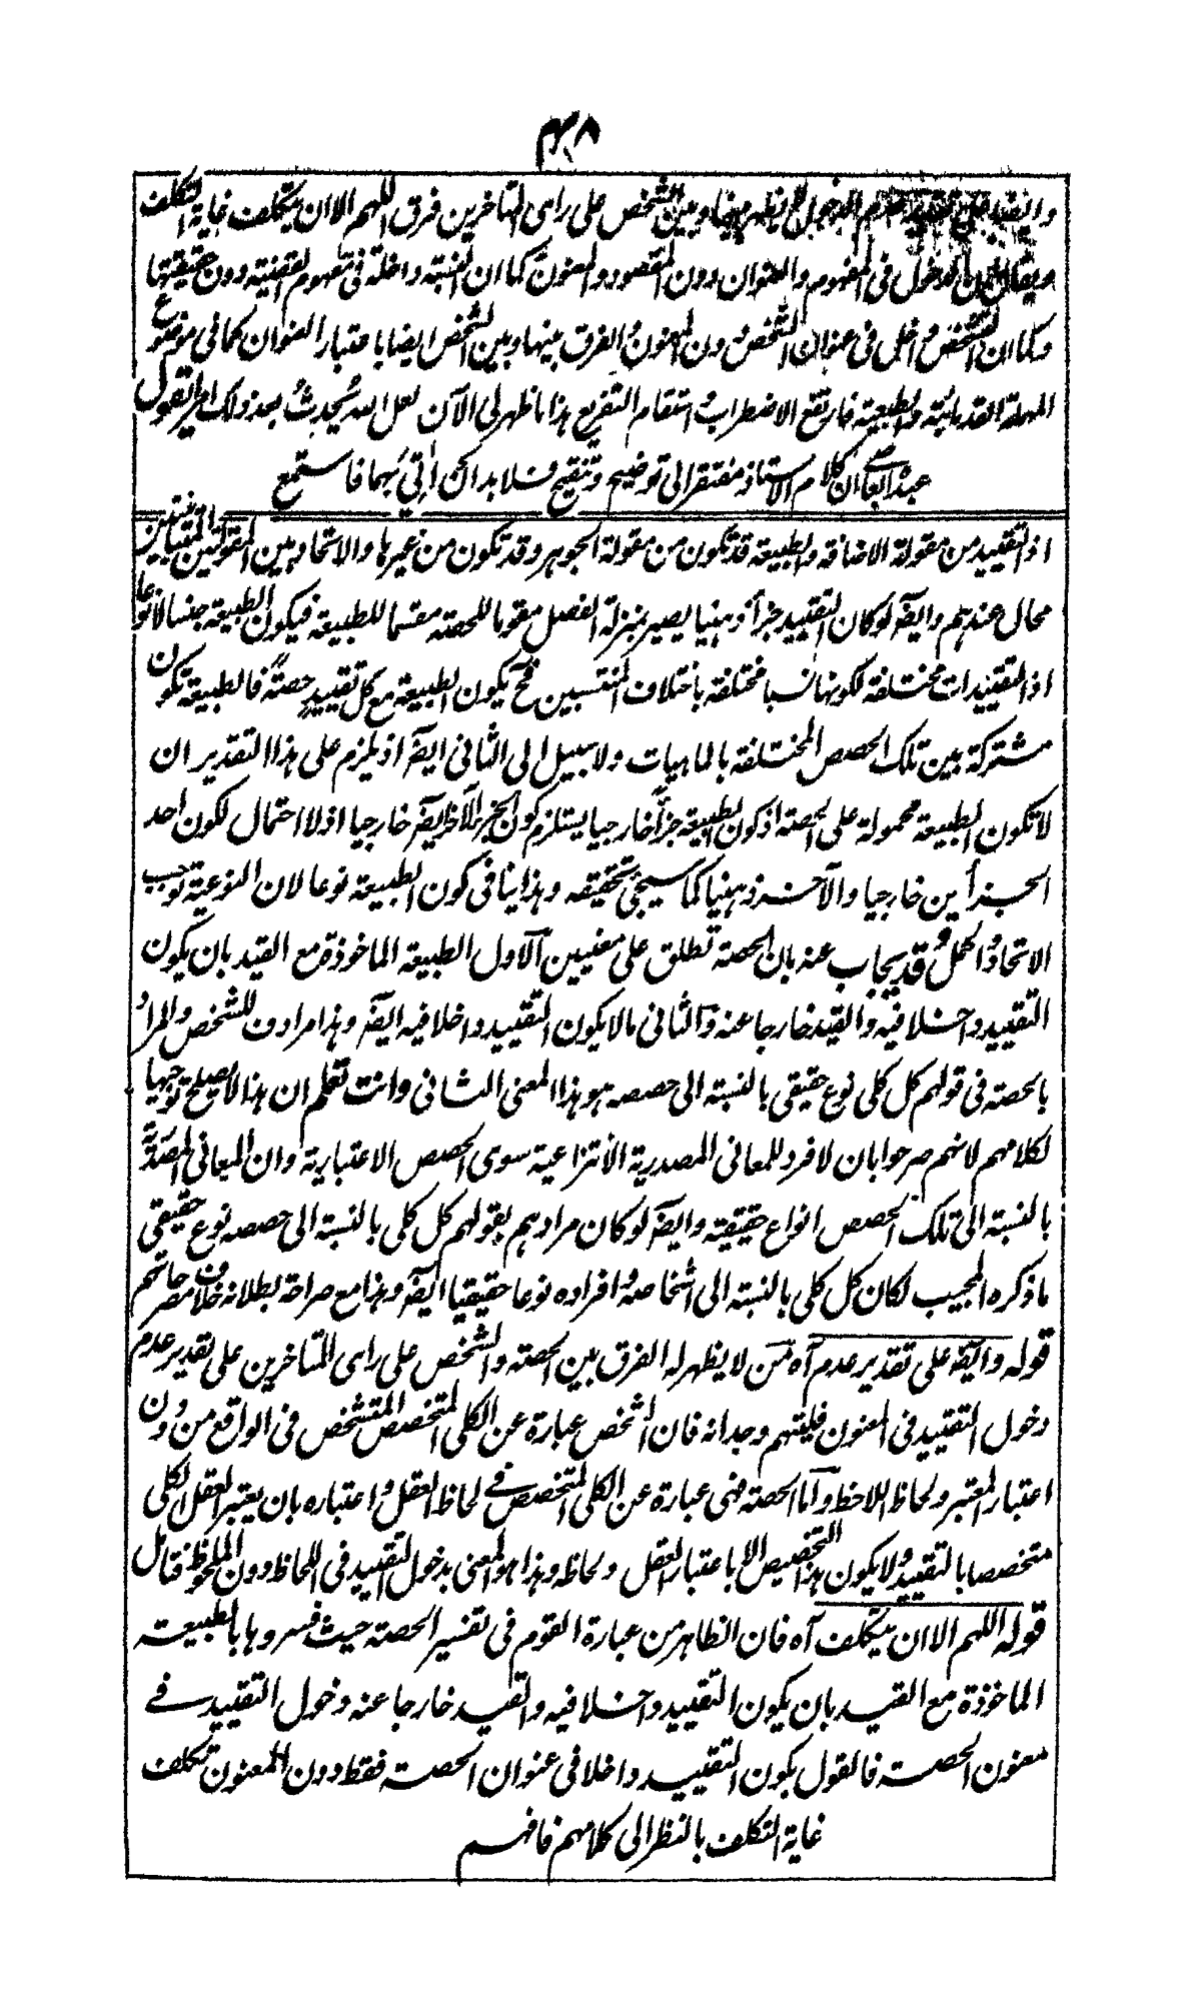 ٤٨
وبين الشخص على راى المتاخرين فرق اللهم الا ان يتكلف غاية التكلف
ويقال الدخول فى المفهوم والعنوان دون المقصود والمعنون كما ان النسبة داخلة فى مفهوم القضية دون حقيقتها
وكما ان التشخص داخل فى عنوان الشخص دون المعنون والفرق بينها وبين الشخص ايضا باعتبار العنوان كما فى موضوع
المهملة القدمائية والطبيعية فارتفع الاضطراب واستقام التفريع هذا ما ظهر لى الآن لعل الله يحدث بعد ذلك امرا يقول
عبده العاصى ان كلام الاستاذ مفتقر الى توضيح وتنقيح فلا بد ان آتى بهما فاستمع
اذ التقييد من مقولة الاضافة والطبيعة قد تكون من مقولة الجوهر وقد تكون من غيرها والاتحاد بين المقولتين المتباينتين
محال عندهم وايضا لو كان التقييد جزأ ذهنيا يصير بمنزلة الفصل مقوما للحصة مقسما للطبيعة فيكون الطبيعة جنسا لانواعا
اذ التقييدات مختلفة لكونها نسبا مختلفة باختلاف المنتسبين فح يكون الطبيعة مع كل تقييد حصة فالطبيعة تكون
مشتركة بين تلك الحصص المختلفة بالماهيات ولا سبيل الى الثانى ايضا اذ يلزم على هذا التقدير ان
لا تكون الطبيعة محمولة على الحصة اذ كون الطبيعة جزأ خارجيا يستلزم كون الجزء الآخر ايضا خارجيا اذ لا احتمال لكون احد
الجزأين خارجيا والآخر ذهنيا كما سيجئ تحقيقه وهذا ينافى كون الطبيعة نوعا لان النوعية توجب
الاتحاد والحمل وقد يجاب عنه بان الحصة تطلق على معنيين الاول الطبيعة الماخوذة مع القيد بان يكون
التقييد داخلا فيه والقيد خارجا عنه والثانى ما لا يكون التقييد داخلا فيه ايضا وهذا مرادف للشخص والمراد
بالحصة فى قولهم كل كلى نوع حقيقى بالنسبة الى حصصه هو هذا المعنى الثانى وانت تعلم ان هذا لا يصلح توجيها
لكلامهم لانهم صرحوا بان لا فرد للمعانى المصدرية الانتزاعية سوى الحصص الاعتبارية وان المعانى المصدرية
بالنسبة الى تلك الحصص انواع حقيقية وايضا لو كان مرادهم بقولهم كل كلى بالنسبة الى حصصه نوع حقيقى
ما ذكره المجيب لكان كل كلى بالنسبة الى اشخاصه وافراده نوعا حقيقيا ايضا وهذا مع صراحة بطلانه خلاف مصرحاتهم
قوله وايضا على تقدير عدم آه فمن لا يظهر له الفرق بين الحصة والشخص على راى المتاخرين على تقدير عدم
دخول التقييد فى المعنون فليتهم وجدانه فان الشخص عبارة عن الكلى المتخصص المتشخص فى الواقع من دون
اعتبار المعتبر ولحاظ اللاحظ واما الحصة فهى عبارة عن الكلى المتخصص فى لحاظ العقل واعتباره بان يعتبر العقل الكلى
متخصصا بالتقييد ولا يكون هذا التخصيص الا باعتبار العقل ولحاظه وهذا هو المعنى بدخول التقييد فى اللحاظ دون الملحوظ فتامل
قوله اللهم الا ان يتكلف آه فان الظاهر من عبارة القوم فى تفسير الحصة حيث فسروها بالطبيعة
الماخوذة مع القيد بان يكون التقييد داخلا فيه والقيد خارجا عنه دخول التقييد فى
معنون الحصة فالقول بكون التقييد داخلا فى عنوان الحصة فقط دون المعنون تكلف
غاية التكلف بالنظر الى كلامهم فافهم